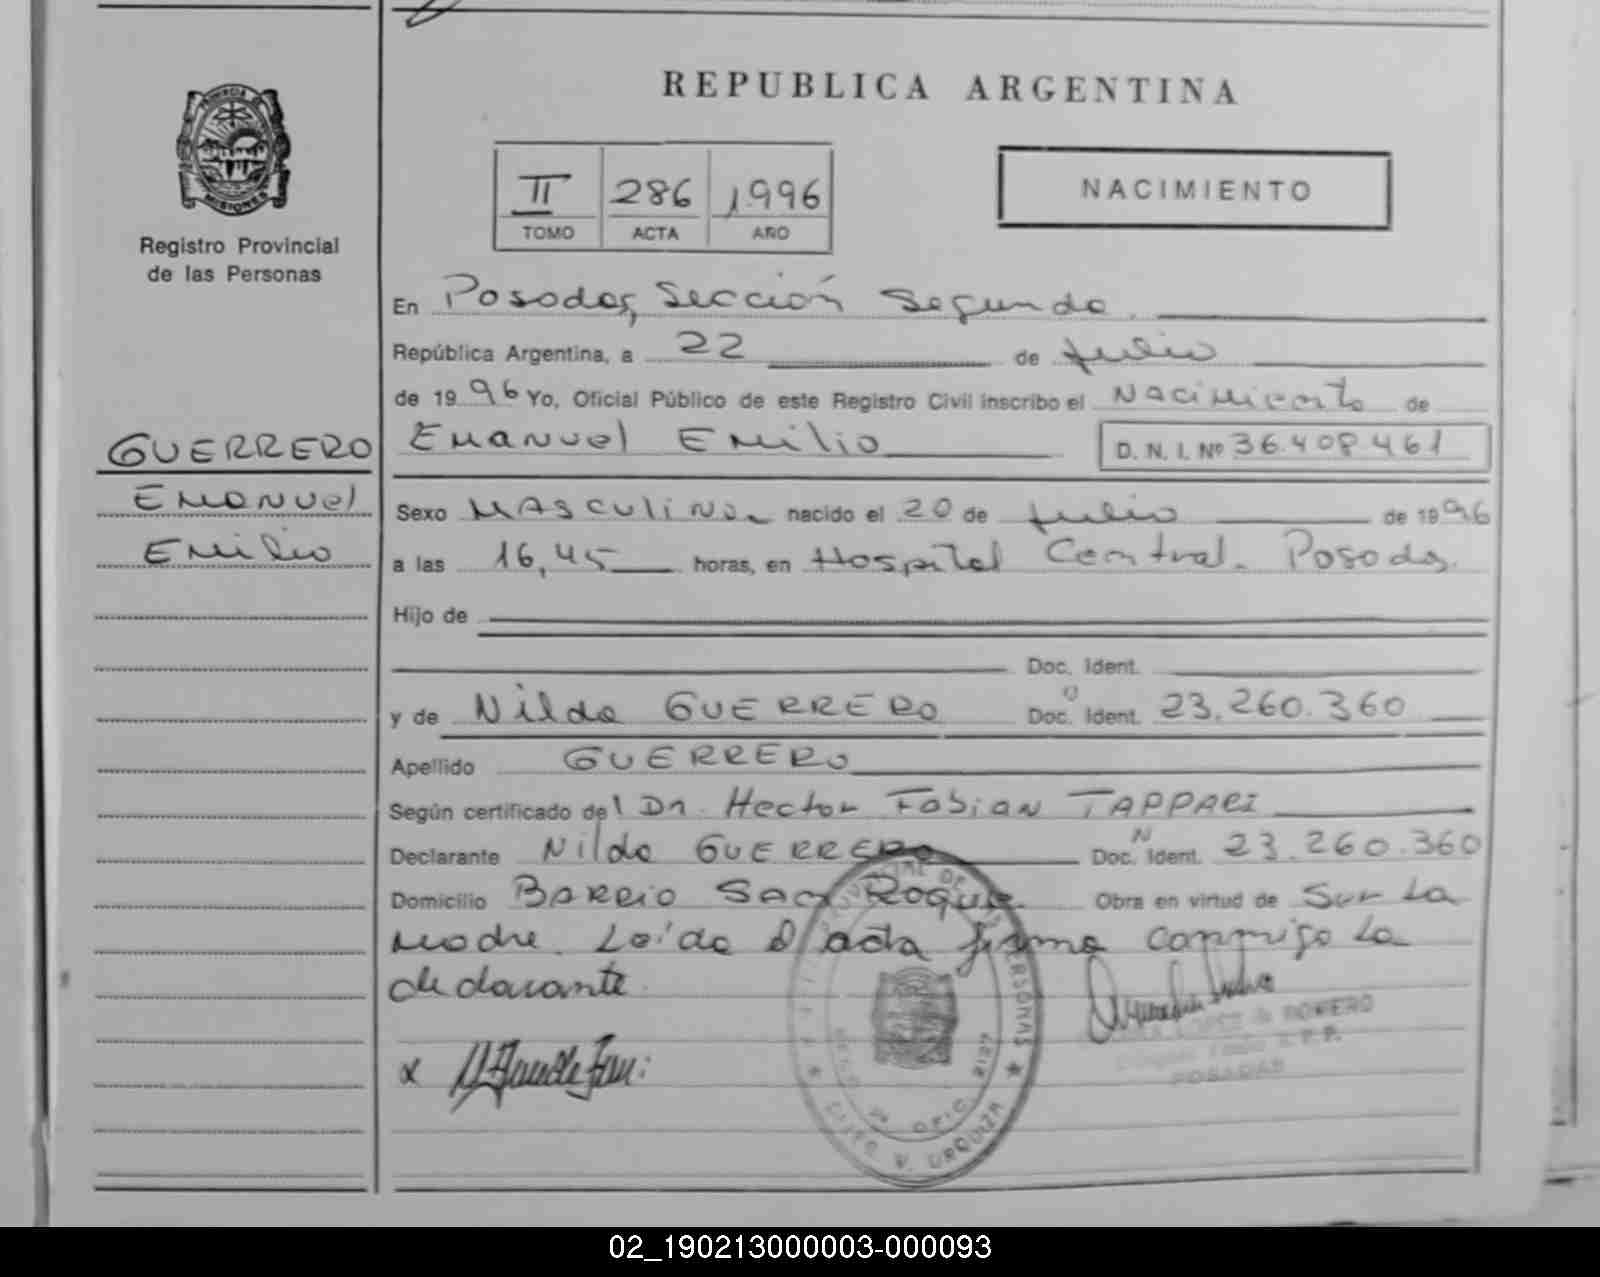 REPUBLICA ARGENTINA
PROVINCIA DE
MISIONES
Registro Provincial
de las Personas
II 286 1996
TOMO ACTA AÑO
NACIMIENTO
En Posadas, Sección Segunda
República Argentina, a 22 de Julio
de 1996 Yo, Oficial Público de este Registro Civil inscribo el Nacimiento de
GUERRERO
Emanuel Emilio D. N. I. Nº 36.408.461
Emanuel
Emilio
Sexo MASCULINO nacido el 20 de Julio de 1996
a las 16,45 horas, en Hospital Central. Posadas.
Hijo de
Doc. Ident.
y de Nilda GUERRERO Doc. Ident. 23.260.360
Apellido GUERRERO
Según certificado del Dr. Hector Fabian TAPPARI
Declarante Nilda GUERRERO Doc. Ident. 23.260.360
Domicilio BARRIO San Roque Obra en virtud de Ser La
Madre. Leída el acta firma conmigo La
declarante.
PROVINCIAL DE LAS PERSONAS
OFIC. URQUIZA
LOPEZ de ROMERO
POSADAS
02_190213000003-000093